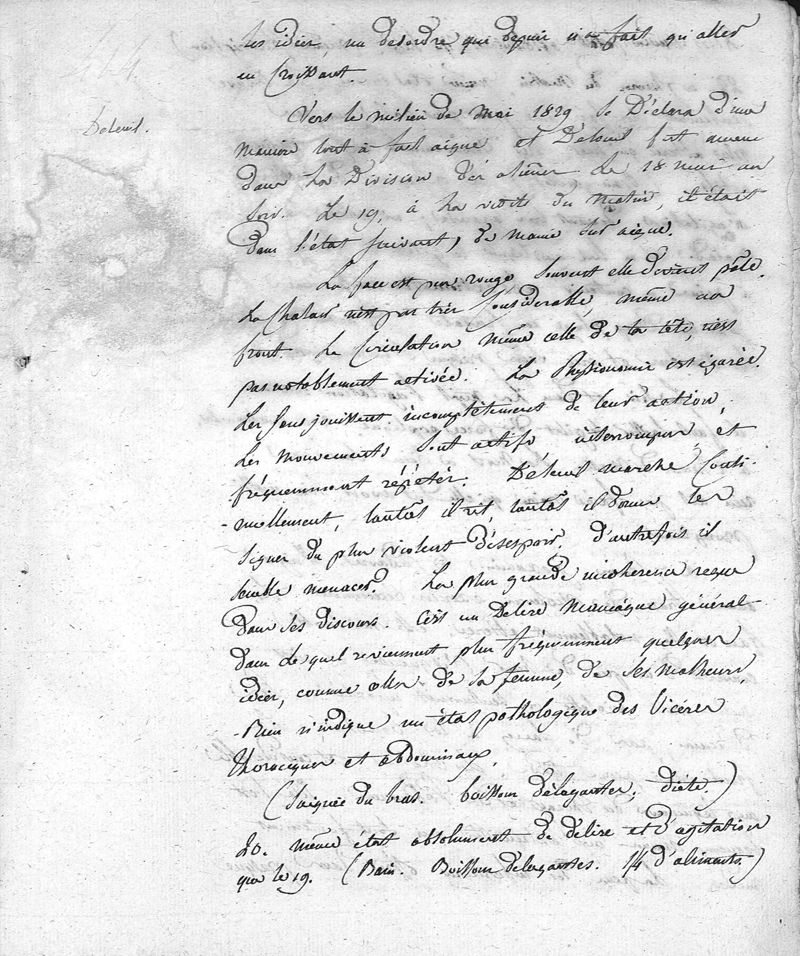 les idées, un desordre qui depuis n'a fait qu'aller
en Croissant.
Deleuil.
Vers le milieu de mai 1829 se Déclara d'une
maniere tout à fait aigue et Deleuil fut amené
dans la Division des alienés le 18 mai au
soir. Le 19, à la visite du matin, il était
dans l'état suivant, de manie sur aigue.
La face est peu rouge souvent elle devient pâle.
La Chaleur n'est pas très Considerable, même au
front. La Circulation même celle de la tête, n'est
pas notablement activée. La Physionomie est égarée.
Les sens jouissent incomplètement de leur action,
Les mouvements sont actifs interrompus et
fréquemment répétés. Deleuil marche Conti-
-nuellement, tantôt il rit, tantôt il donne les
signes du plus violent désespoir, d'autrefois il
semble menacer. La plus grande incoherence regne
dans ses discours. C'est un Delire Maniaque général
dans lequel reviennent plus fréquemment quelques
idées, comme celles de sa femme, de ses malheurs,
- Rien n'indique un état pathologique des Viscères
thoraciques et abdominaux.
(Saignée du bras. boissons délayantes, diète.)
20. même état absolument de délire et d'agitation
que le 19. (Bain. Boissons delayantes. 1/4 d'aliments.)